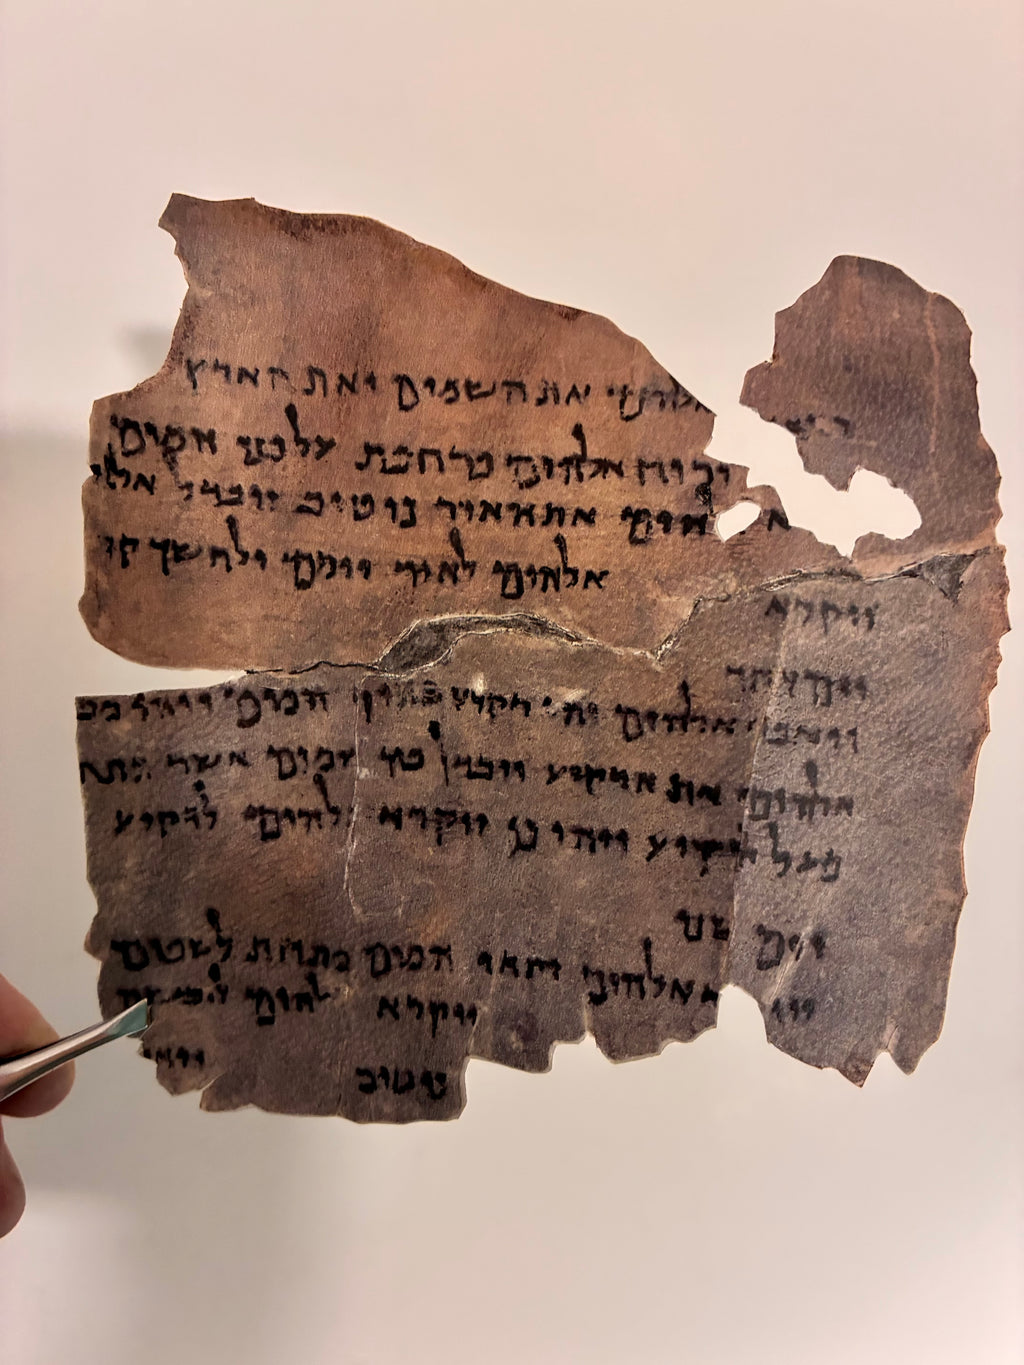 אלהים את השמים ואת הארץ
ורוח אלהים מרחפת על פני המים
אלהים את האור כי טוב ויבדל אלהי
אלהים לאור יומם ולחשך קר
ויקרא
יום אחד
ויאמר אלהים יהי רקיע בתוך המים ויהי מב
אלהים את הרקיע ויבדל בין המים אשר מתח
מעל לרקיע ויהי כן ויקרא אלהים לרקיע
שני
אלהים המים מתחת לשמים
ויקרא אלהים
כי טוב